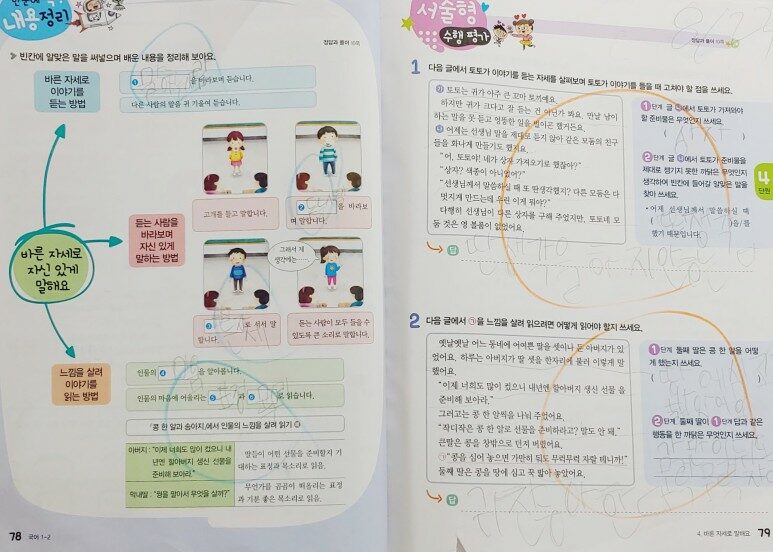 내용정리
정답과 풀이 10쪽
빈칸에 알맞은 말을 써넣으며 배운 내용을 정리해 보아요.
바른 자세로
이야기를
듣는 방법
1 을 바라보며 듣습니다.
다른 사람의 말을 귀 기울여 듣습니다.
듣는 사람을
바라보며
자신 있게
말하는 방법
고개를 들고 말합니다.
2 을 바라보
며 말합니다.
그래서 제
생각에는……
3 로 서서 말
합니다.
듣는 사람이 모두 들을 수
있도록 큰 소리로 말합니다.
바른 자세로
자신 있게
말해요
느낌을 살려
이야기를
읽는 방법
인물의 4 을 알아봅니다.
인물의 마음에 어울리는 5 과 6 로 읽습니다.
「콩 한 알과 송아지」에서 인물의 느낌을 살려 읽기
아버지: "이제 너희도 많이 컸으니 내
년엔 할아버지 생신 선물을
준비해 보아라."
딸들이 어떤 선물을 준비할지 기
대하는 표정과 목소리로 읽음.
막내딸: "콩을 팔아서 무엇을 살까?"
무언가를 곰곰이 떠올리는 표정
과 기분 좋은 목소리로 읽음.
78 국어 1-2
서술형
수행 평가
정답과 풀이 10쪽
1 다음 글에서 토토가 이야기를 듣는 자세를 살펴보며 토토가 이야기를 들을 때 고쳐야 할 점을 쓰세요.
㉮ 토토는 귀가 아주 큰 꼬마 토끼예요.
하지만 귀가 크다고 잘 듣는 건 아닌가 봐요. 만날 남이
하는 말을 못 듣고 엉뚱한 일을 벌이곤 했거든요.
㉯ 어제는 선생님 말을 제대로 듣지 않아 같은 모둠의 친구
들을 화나게 만들기도 했지요.
"어, 토토야! 네가 상자 가져오기로 했잖아?"
"상자? 색종이 아니었어?"
"선생님께서 말씀하실 때 또 딴생각했지? 다른 모둠은 다
멋지게 만드는데 우린 이게 뭐야?"
다행히 선생님이 다른 상자를 구해 주었지만, 토토네 모
둠 것은 영 볼품이 없었어요.
1단계 글 ㉯에서 토토가 가져와야
할 준비물은 무엇인지 쓰세요.
( 상자 )
2단계 글 ㉯에서 토토가 준비물을
제대로 챙기지 못한 까닭은 무엇인지
생각하며 빈칸에 들어갈 알맞은 말을
찾아 쓰세요.
• 어제 선생님께서 말씀하실 때
( )을/를
했기 때문입니다.
4
단원
답
2 다음 글에서 ㉠을 느낌을 살려 읽으려면 어떻게 읽어야 할지 쓰세요.
옛날옛날 어느 동네에 어여쁜 딸을 셋이나 둔 아버지가 있
었어요. 하루는 아버지가 딸 셋을 한자리에 불러 이렇게 말
했어요.
"이제 너희도 많이 컸으니 내년엔 할아버지 생신 선물을
준비해 보아라."
그러고는 콩 한 알씩을 나눠 주었어요.
"작디작은 콩 한 알로 선물을 준비하라고? 말도 안 돼."
큰딸은 콩을 창밖으로 던져 버렸어요.
㉠"콩을 심어 놓으면 가만히 둬도 무럭무럭 자랄 테니까!"
둘째 딸은 콩을 땅에 심고 푹 밟아 놓았어요.
1단계 둘째 딸은 콩 한 알을 어떻
게 했는지 쓰세요.
2단계 둘째 딸이 1단계 답과 같은
행동을 한 까닭은 무엇인지 쓰세요.
답
4. 바른 자세로 말해요 79